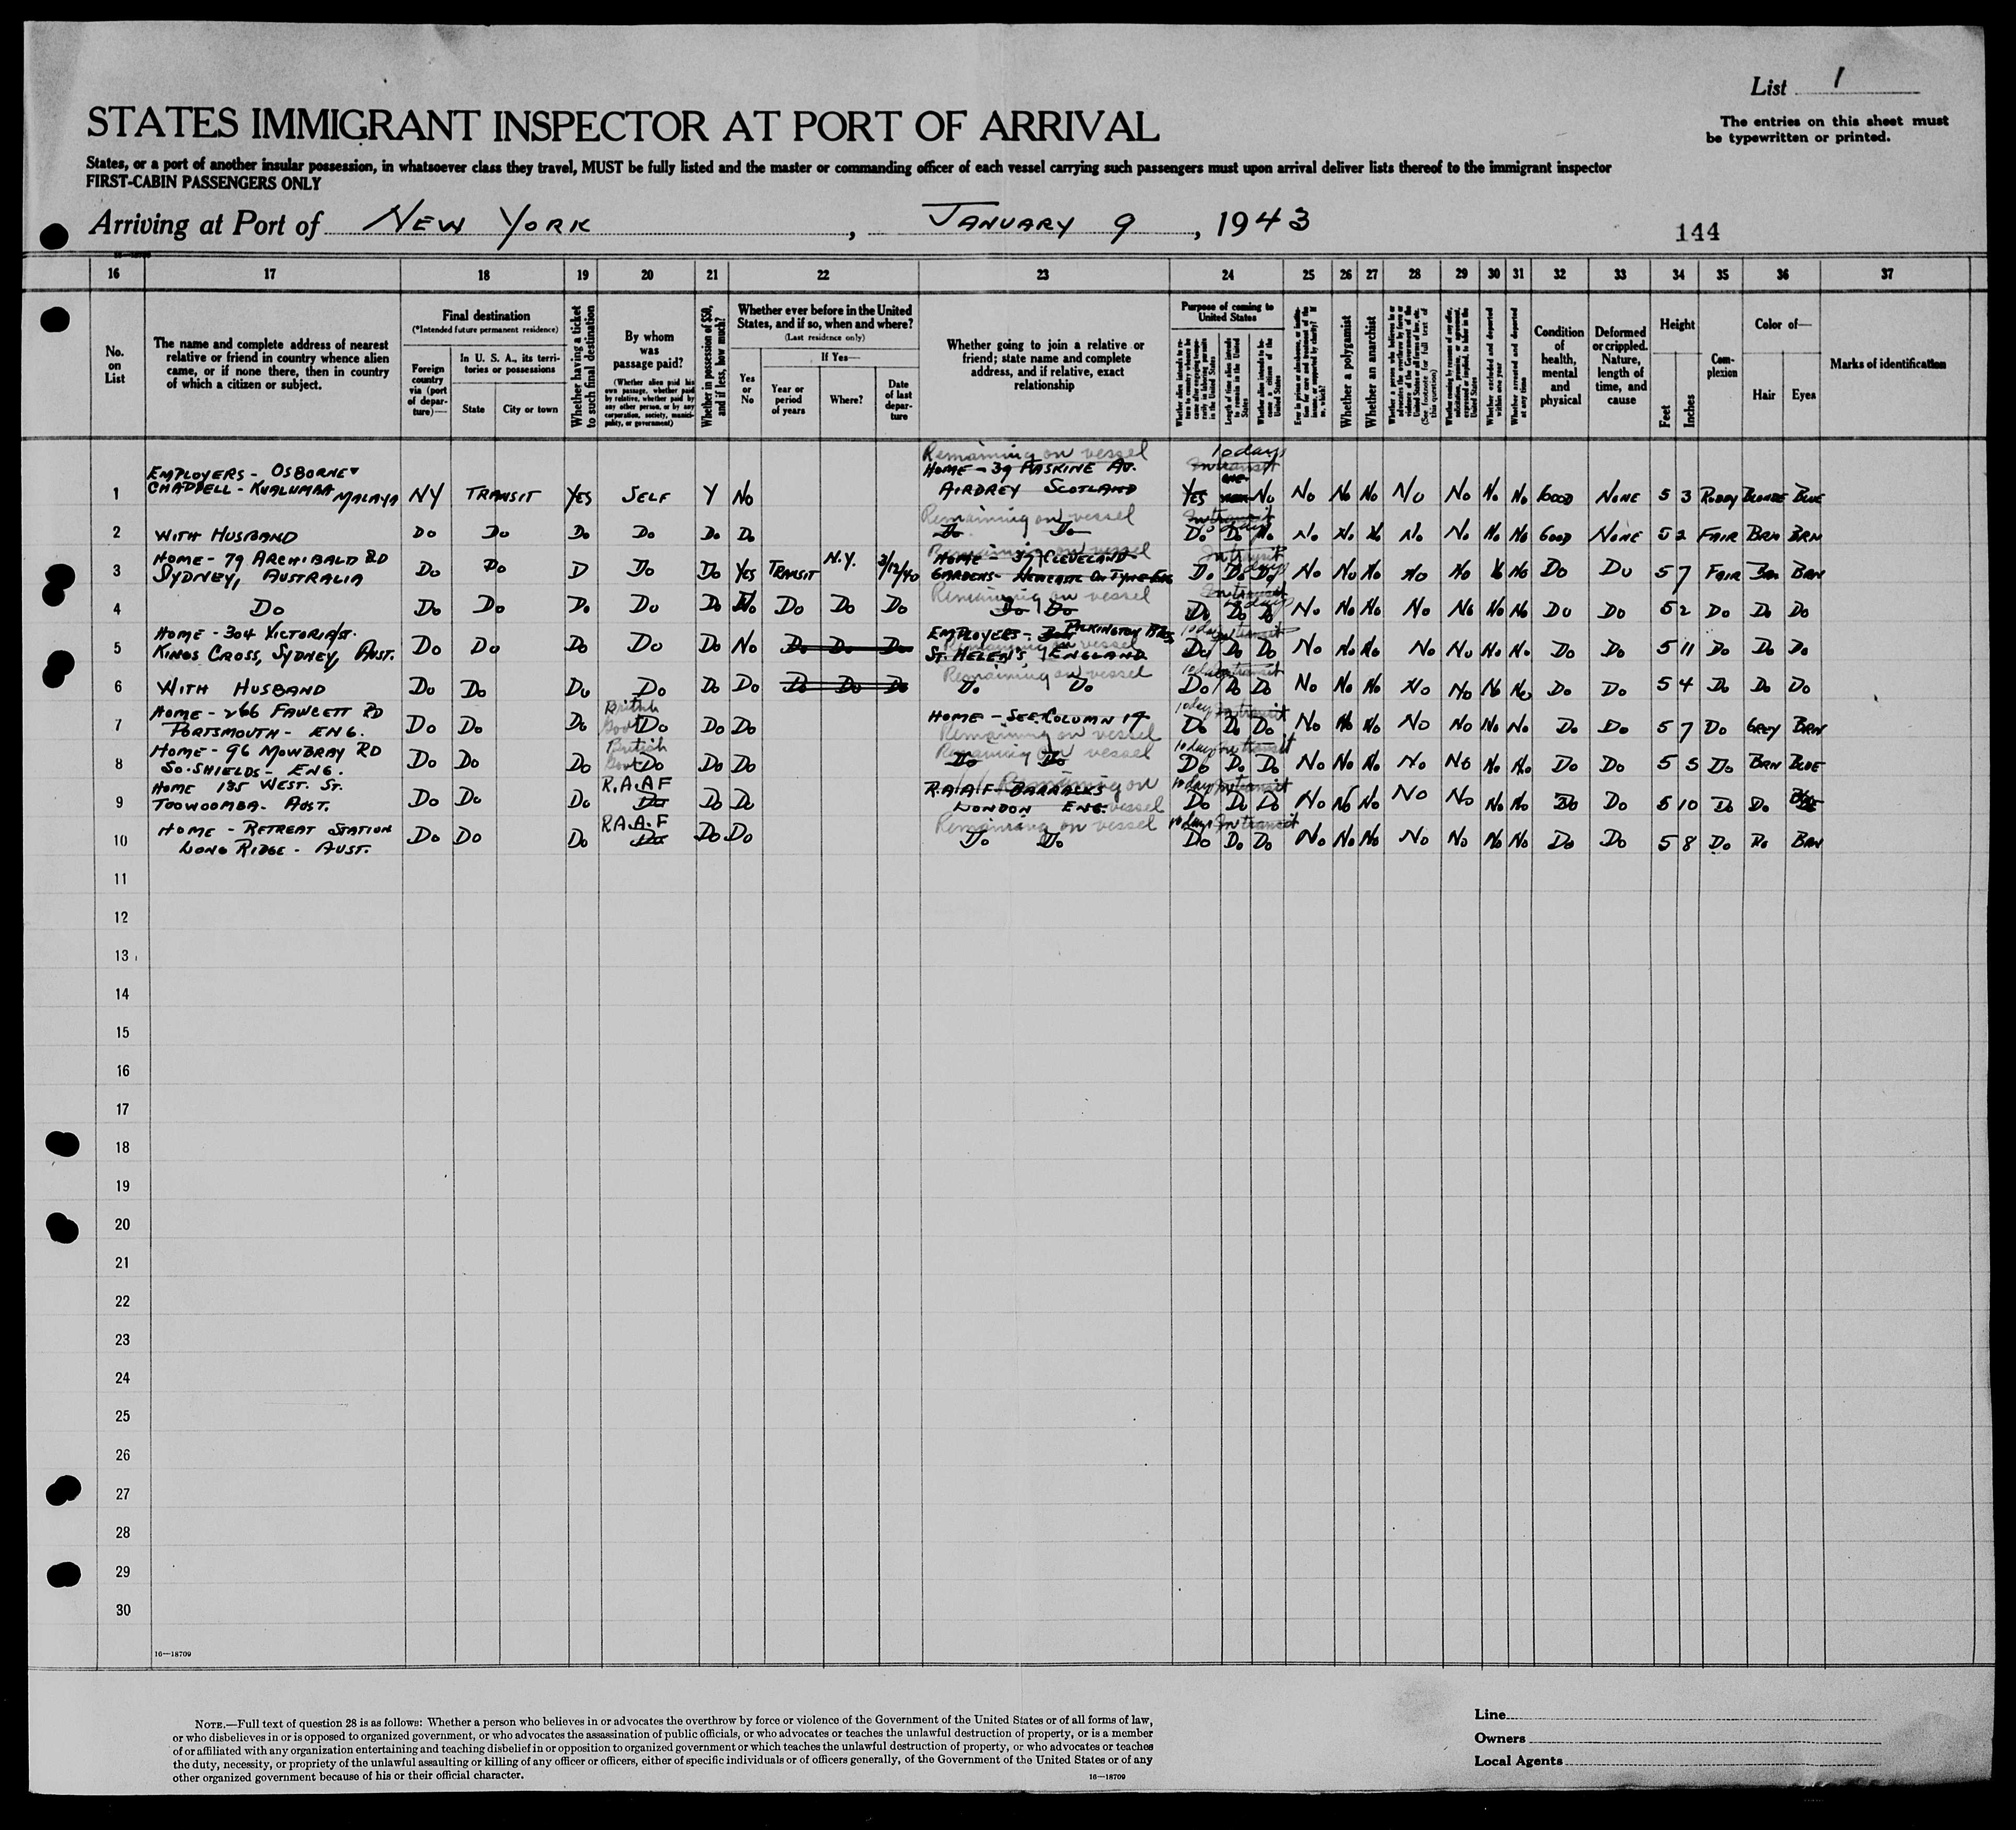 List 1
The entries on this sheet must
be typewritten or printed.
STATES IMMIGRANT INSPECTOR AT PORT OF ARRIVAL
States, or a port of another insular possession, in whatsoever class they travel, MUST be fully listed and the master or commanding officer of each vessel carrying such passengers must upon arrival deliver lists thereof to the immigrant inspector
FIRST-CABIN PASSENGERS ONLY
Arriving at Port of NEW YORK, JANUARY 9, 1943
144
16 17 18 19 20 21 22 23 24 25 26 27 28 29 30 31 32 33 34 35 36 37
No. on List
The name and complete address of nearest
relative or friend in country whence alien
came, or if none there, then in country
of which a citizen or subject.
Final destination
(*Intended future permanent residence)
Foreign country via (port of departure)—
In U. S. A., its territories or possessions
State
City or town
Whether having a ticket to such final destination
By whom was passage paid?
(Whether alien paid his own passage, whether paid by relative, whether paid by any other person, or by any corporation, society, municipality, or government)
Whether in possession of $50, and if less, how much?
Whether ever before in the United States, and if so, when and where?
(Last residence only)
Yes or No
If Yes—
Year or period of years
Where?
Date of last departure
Whether going to join a relative or
friend; state name and complete
address, and if relative, exact
relationship
Purpose of coming to United States
Length of time alien intends to remain in the United States
Whether alien intends to become a citizen of the United States
Whether a polygamist
Whether an anarchist
Whether excluded and deported within one year
Whether arrested and deported at any time
Condition of health, mental and physical
Deformed or crippled. Nature, length of time, and cause
Height
Feet
Inches
Complexion
Color of—
Hair
Eyes
Marks of identification
Remaining on vessel 10 days
EMPLOYERS - OSBORNE & HOME - 39 AV. In transit
1 CHAPPELL - MALAYA NY TRANSIT YES SELF Y NO AIRDREY SCOTLAND YES NO NO NO NO NO NO NO NO GOOD NONE 5 3 RUDDY BLONDE BLUE
Remaining on vessel In transit
2 WITH HUSBAND DO DO DO DO DO DO DO DO DO DO NO NO NO NO NO NO NO NO GOOD NONE 5 2 FAIR BRN BRN
HOME - 79 ARCHIBALD RD N.Y. Remaining on vessel HOME - 39 CLEVELAND In transit
3 SYDNEY, AUSTRALIA DO DO D DO DO YES TRANSIT 3/12/40 GARDENS - NEWCASTLE ON TYNE ENG DO DO DO NO NO NO NO NO NO NO DO DO 5 7 FAIR BRN BRN
Remaining on vessel In transit
4 DO DO DO DO DO DO NO DO DO DO DO DO DO DO DO NO NO NO NO NO NO NO DO DO 5 2 DO DO DO
HOME - 304 VICTORIA ST. EMPLOYERS - PILKINGTON BROS 10 days In transit
5 KINGS CROSS, SYDNEY, AUST. DO DO DO DO DO NO DO DO DO Remaining on vessel ST. HELEN'S, ENGLAND DO DO DO NO NO NO NO NO NO NO DO DO 5 11 DO DO DO
Remaining on vessel 10 days In transit
6 WITH HUSBAND DO DO DO DO DO DO DO DO DO DO DO DO DO DO NO NO NO NO NO NO NO DO DO 5 4 DO DO DO
HOME - 266 FAWCETT RD British Govt HOME - SEE COLUMN 17 10 days In transit
7 PORTSMOUTH - ENG. DO DO DO DO DO DO Remaining on vessel DO DO DO NO NO NO NO NO NO NO DO DO 5 7 DO GREY BRN
HOME - 96 MOWBRAY RD British Govt Remaining on vessel 10 days In transit
8 SO. SHIELDS - ENG. DO DO DO DO DO DO DO DO DO DO DO NO NO NO NO NO NO NO DO DO 5 5 DO BRN BLUE
HOME 135 WEST. ST. R.A.A.F R.A.A.F. BARRACKS Remaining on vessel 10 days In transit
9 TOOWOOMBA - AUST. DO DO DO DO DO DO LONDON ENG. DO DO DO NO NO NO NO NO NO NO DO DO 5 10 DO DO
HOME - RETREAT STATION R.A.A.F Remaining on vessel 10 days In transit
10 LONG RIDGE - AUST. DO DO DO DO DO DO DO DO DO DO DO NO NO NO NO NO NO NO DO DO 5 8 DO DO BRN
11
12
13
14
15
16
17
18
19
20
21
22
23
24
25
26
27
28
29
30
16—18709
NOTE.—Full text of question 28 is as follows: Whether a person who believes in or advocates the overthrow by force or violence of the Government of the United States or of all forms of law,
or who disbelieves in or is opposed to organized government, or who advocates the assassination of public officials, or who advocates or teaches the unlawful destruction of property, or is a member
of or affiliated with any organization entertaining and teaching disbelief in or opposition to organized government or which teaches the unlawful destruction of property, or who advocates or teaches
the duty, necessity, or propriety of the unlawful assaulting or killing of any officer or officers, either of specific individuals or of officers generally, of the Government of the United States or of any
other organized government because of his or their official character.
16—18709
Line
Owners
Local Agents